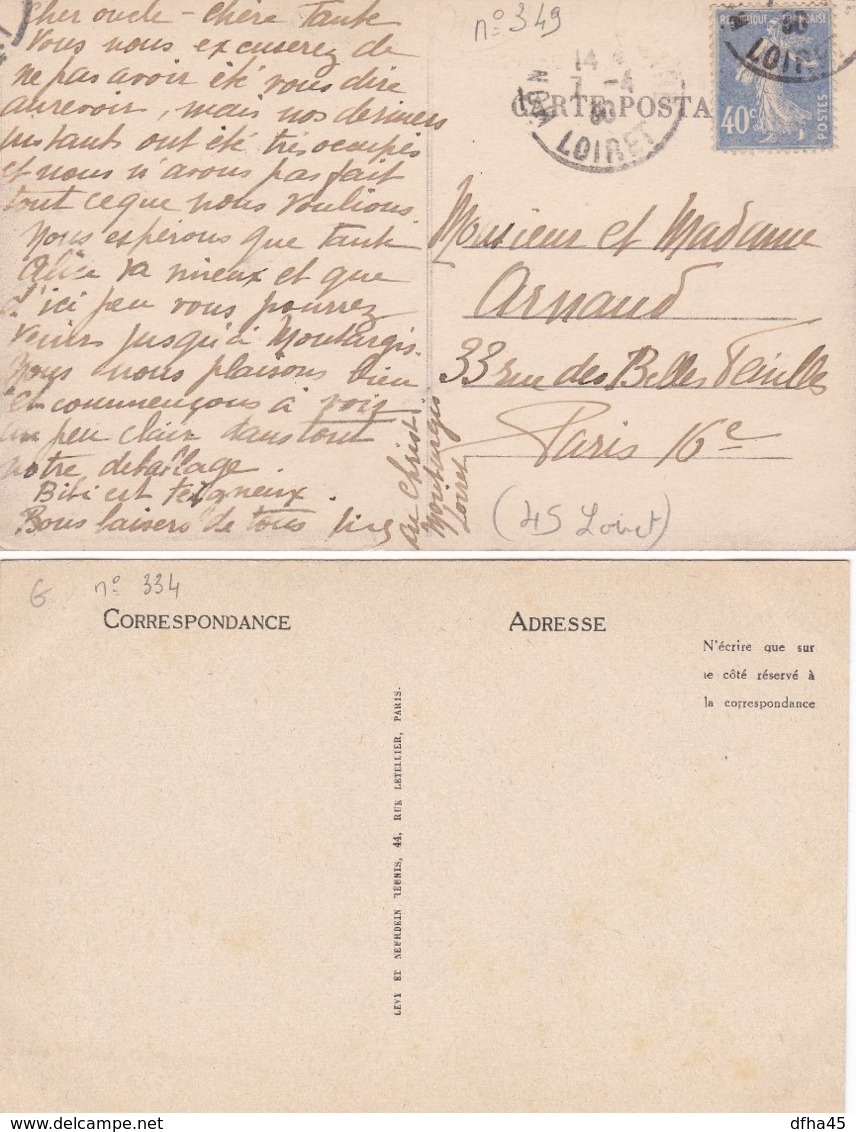 Cher oncle - chère tante
Vous nous excuserez de
ne pas avoir été vous dire
aurevoir, mais nos derniers
instants ont été très occupés
et nous n'avons pas fait
tout ce que nous voulions.
Nous espérons que tante
Alice va mieux et que
d'ici peu vous pourrez
venir jusqu'à Montargis.
Nous nous plaisons bien
et commençons à voir
un peu clair dans tout
notre deballage.
Bibi est teigneux.
Bons baisers de tous
au Christ
Montargis
Loiret
n° 349
14
7 -4
30
LOIRET
CARTE POSTA
REPUBLIQUE FRANÇAISE
40c
POSTES
30
LOIRET
Monsieur et Madame
Arnaud
33 rue des Belles Feuilles
Paris 16e
(45 Loiret)
G n° 334
CORRESPONDANCE
ADRESSE
N'écrire que sur
le côté réservé à
la correspondance
LEVY ET NEURDEIN RÉUNIS, 44, RUE LETELLIER, PARIS.
dfha45